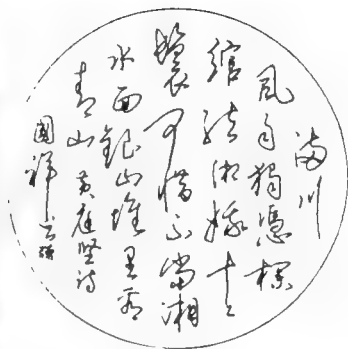 满川
風雨獨憑欄
綰結湘娥十二
鬟可惜不當湖
水面銀山堆里看
青山 黄庭坚诗
國祥